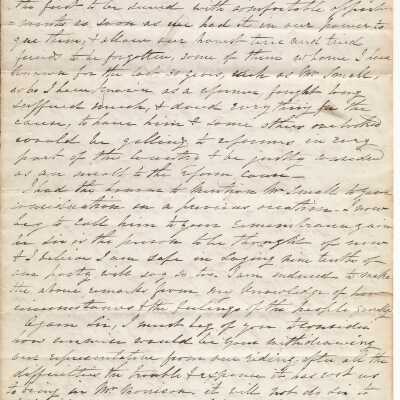 the first to be served with comfortable appoint
ments as soon as we had it in our power to
give them, & allow our honest true and tried
friends to be forgotten, some of them whome I have
known for the last 20 years, such as Mr Small
who I have known as a reformer fought long
suffered much, & doned everything for the
cause, to have him & some others over looked
would be galling to reformers in every
part of the country & be justly considered
as an insult to the reform cause.
I had the honour to mention Mr Small to your
consideration on a previous occasion. I now
beg to call him to your remembrance again
he Sir is the person to be thought of now
& I believe I am safe in saying nine tenths of
our party will say so too. I am induced to make
the above remarks from my knowledge of
circumstances & the feelings of the people
Again Sir, I must beg of you to consider
how unwise would be your withdrawing
our representative from our riding after all the
difficulties the trouble & expence it has cost us
to bring in Mr Morrison it will not do Sir to